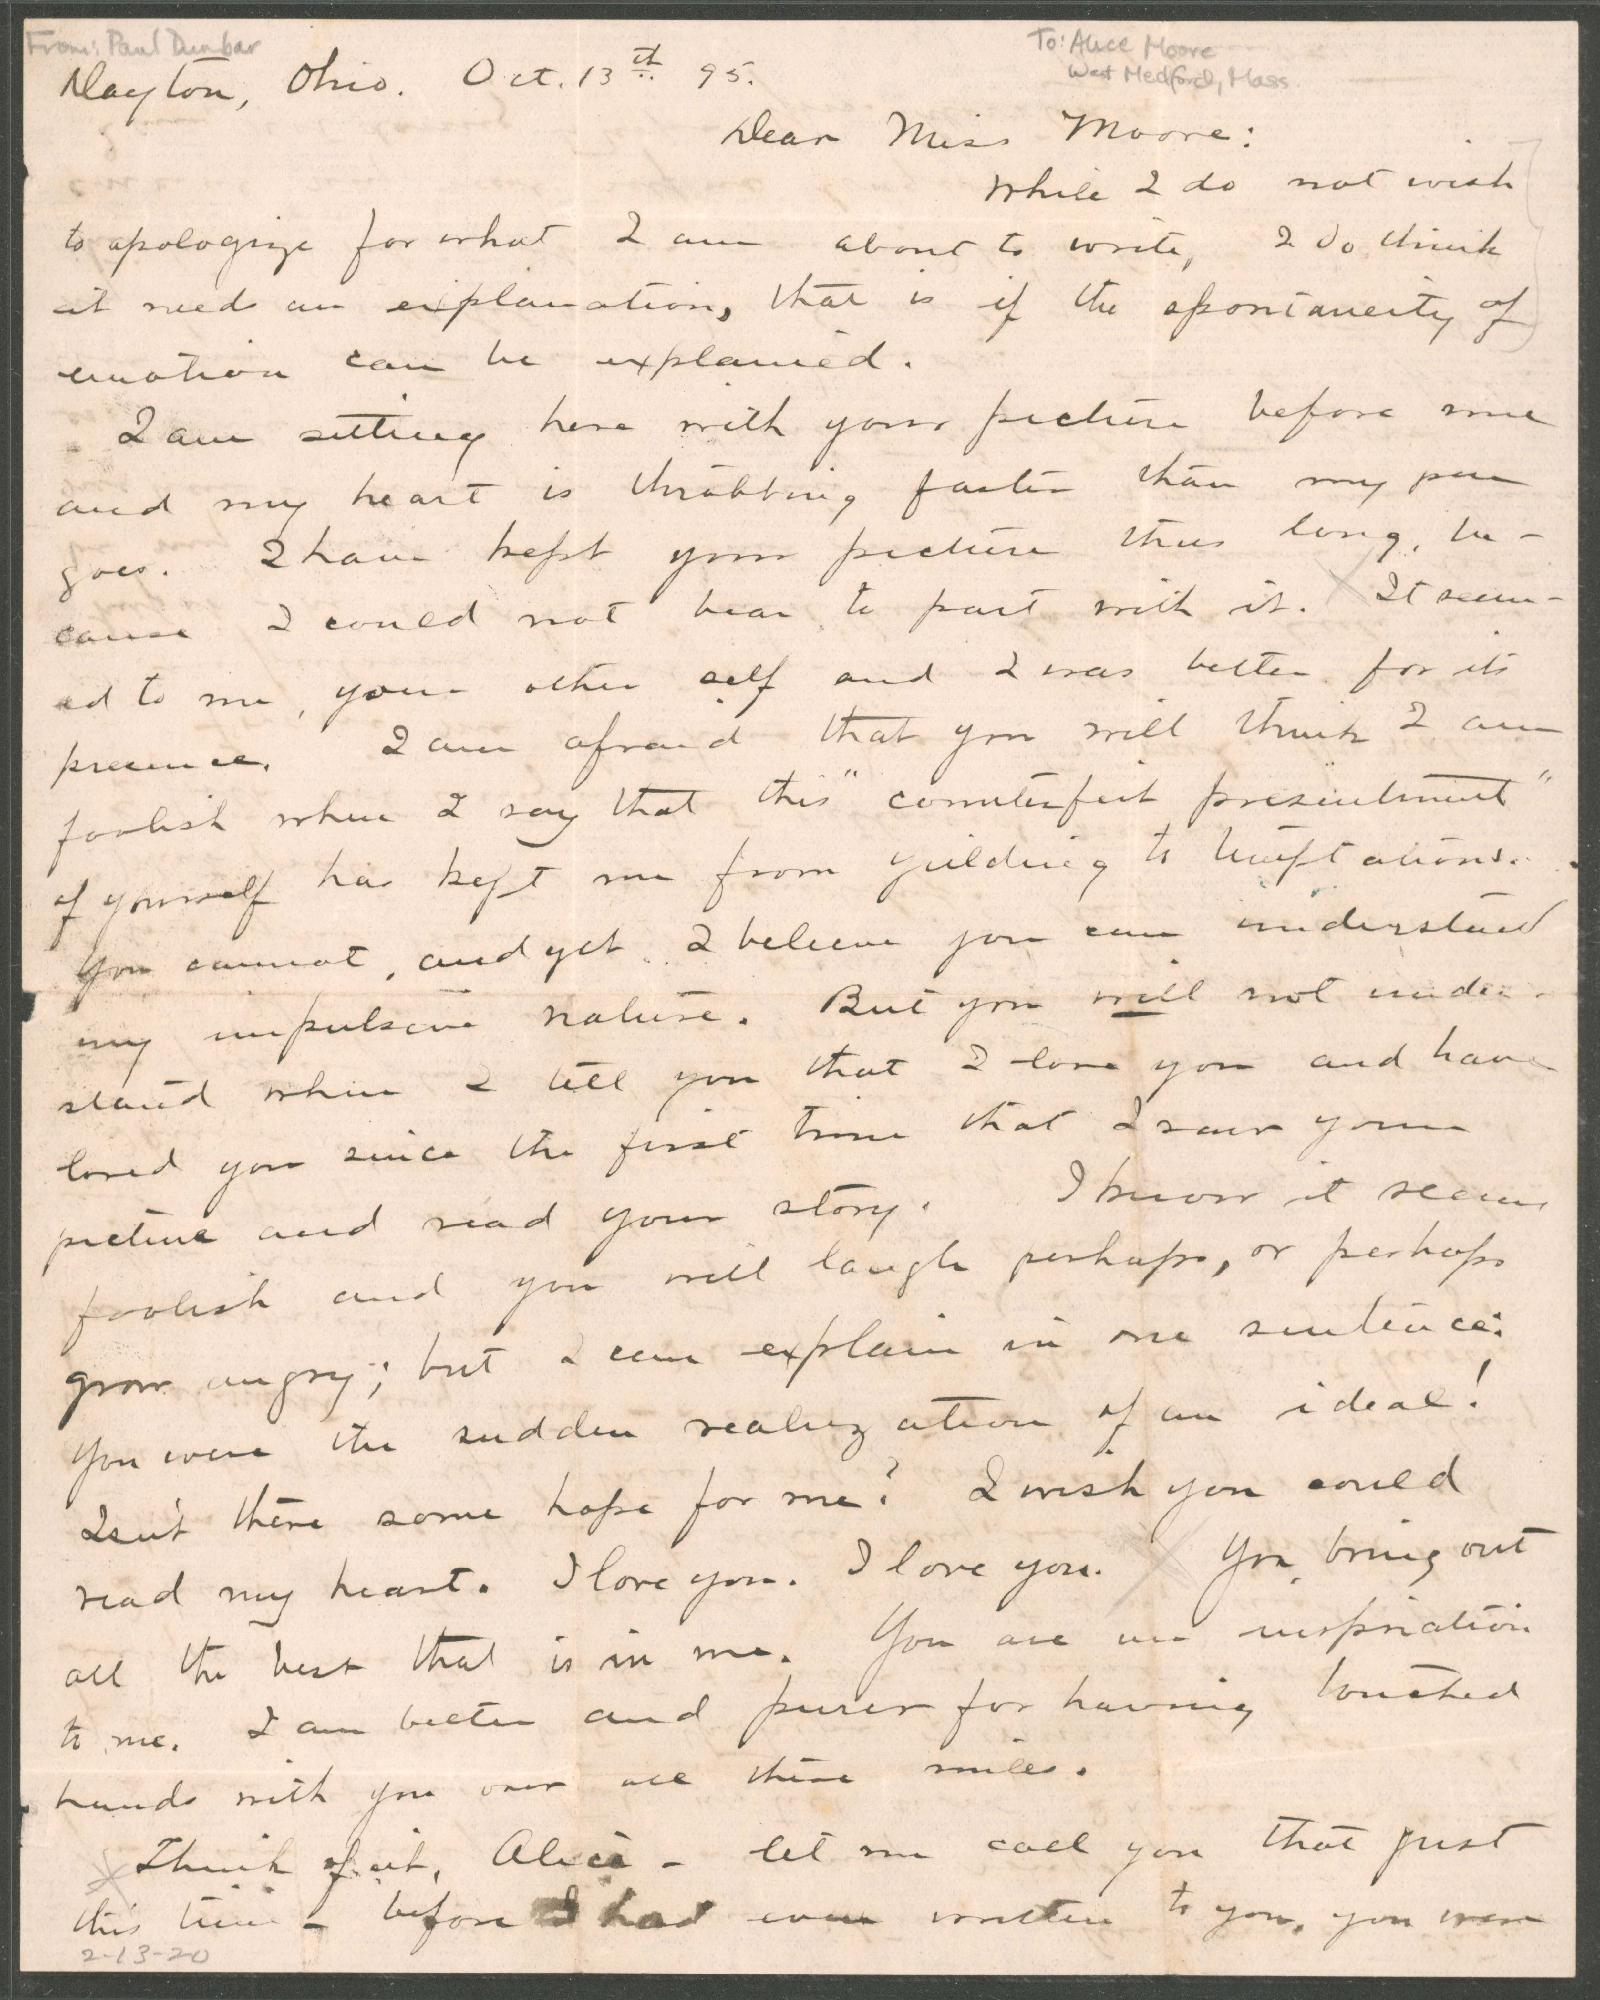 From: Paul Dunbar
To: Alice Moore
West Medford, Mass.
Dayton, Ohio. Oct. 13th 95.
Dear Miss Moore:
While I do not wish
to apologize for what I am about to write, I do think
it needs an explanation, that is if the spontaneity of
emotion can be explained.
I am sitting here with your picture before me
and my heart is throbbing faster than my pen
goes. I have kept your picture thus long, be-
cause I could not bear to part with it. It seem-
ed to me, your other self and I was better for its
presence. I am afraid that you will think I am
foolish when I say that this "counterfeit presentment"
of yourself has kept me from yielding to temptations.
You cannot, and yet I believe you can understand
my impulsive nature. But you will not under-
stand when I tell you that I love you and have
loved you since the first time that I saw your
picture and read your story. I know it seems
foolish and you will laugh perhaps, or perhaps
grow angry; but I can explain in one sentence:
You were the sudden realization of an ideal!
Isn't there some hope for me? I wish you could
read my heart. I love you. I love you. You bring out
all the best that is in me. You are an inspiration
to me. I am better and purer for having touched
hands with you over all these miles.
Think of it, Alice - let me call you that just
this time - before I had even written to you, you were
2-13-20